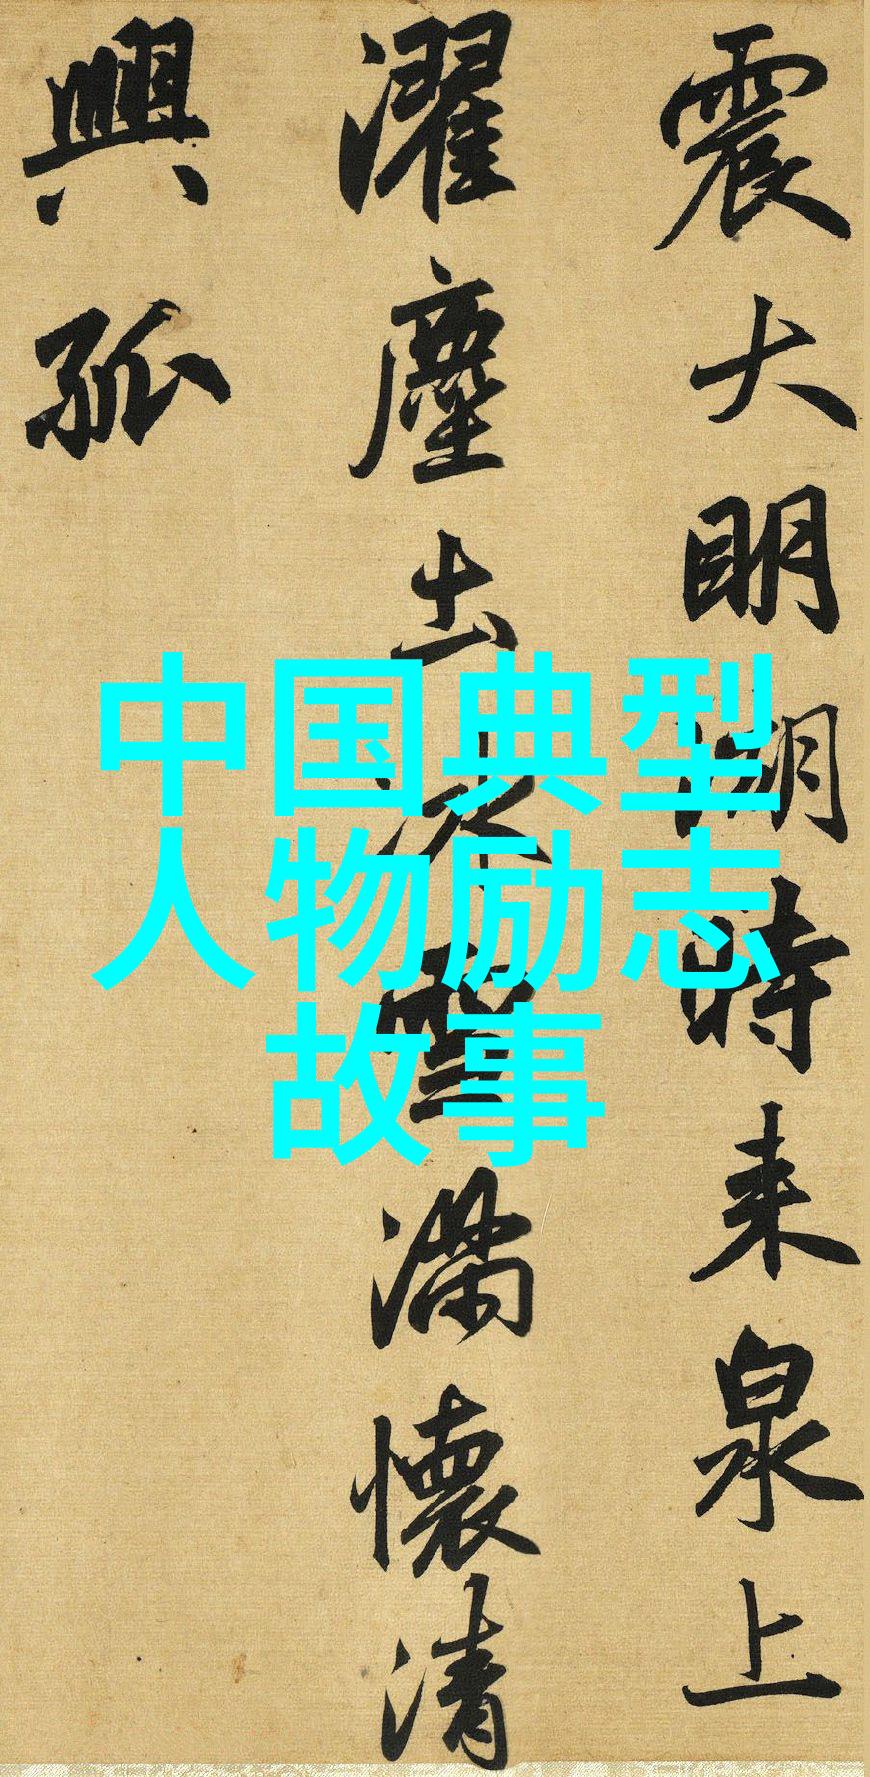 震大明湖時來泉上
濯塵土冰雪滿懷清
興孤
中国典型
人物励志
故事